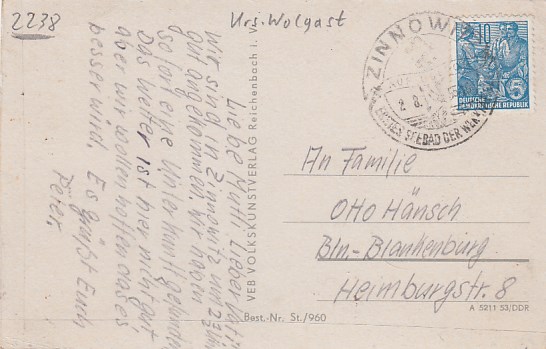 2238
Krs. Wolgast
Liebe Mutti Lieber Vati!
Wir sind in Zinnowitz um
gut angekommen. Wir haben
sofort eine Unterkunft gefunden
Das Wetter ist hier nicht gut,
aber wir wollen hoffen das es
besser wird. Es grüßt Euch
Peter.
VEB VOLKSKUNSTVERLAG Reichenbach i. V.
Best.-Nr. St./960
ZINNOWITZ
SEEBAD DER
10
5
DEUTSCHE
DEMOKRATISCHE REPUBLIK
An Familie
Otto Hänsch
Bln.-Blankenburg
Heimburgstr. 8
A 5211 53/DDR